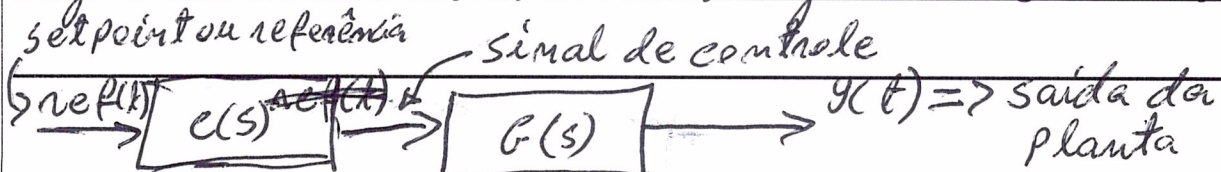 setpoint ou referência
sinal de controle
ref(t) C(S) ref(t) G(S) y(t) => saída da
planta